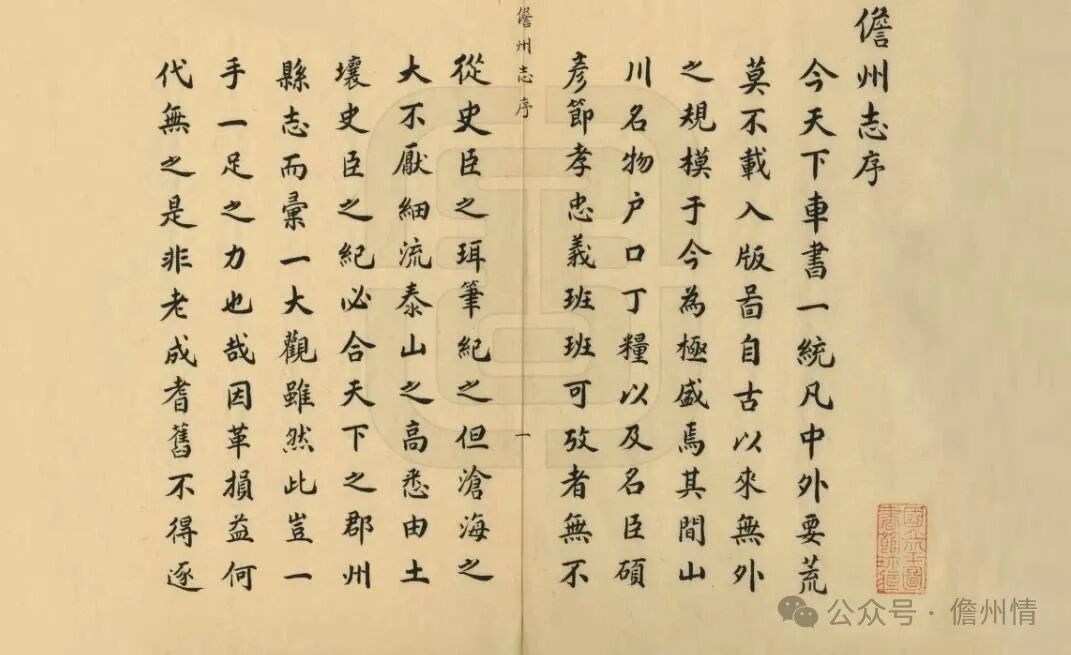 儋州志序
今天下車書一統凡中外要荒
莫不載入版啚自古以來無外
之規模于今為極盛焉其間山
川名物户口丁糧以及名臣碩
彦節孝忠義班班可攷者無不
儋州志序
一
從史臣之珥筆紀之但滄海之
大不厭細流泰山之高悉由土
壤史臣之紀必合天下之郡州
縣志而彙一大觀雖然此豈一
手一足之力也哉因革損益何
代無之是非老成耆舊不得逐
公众号·儋州情